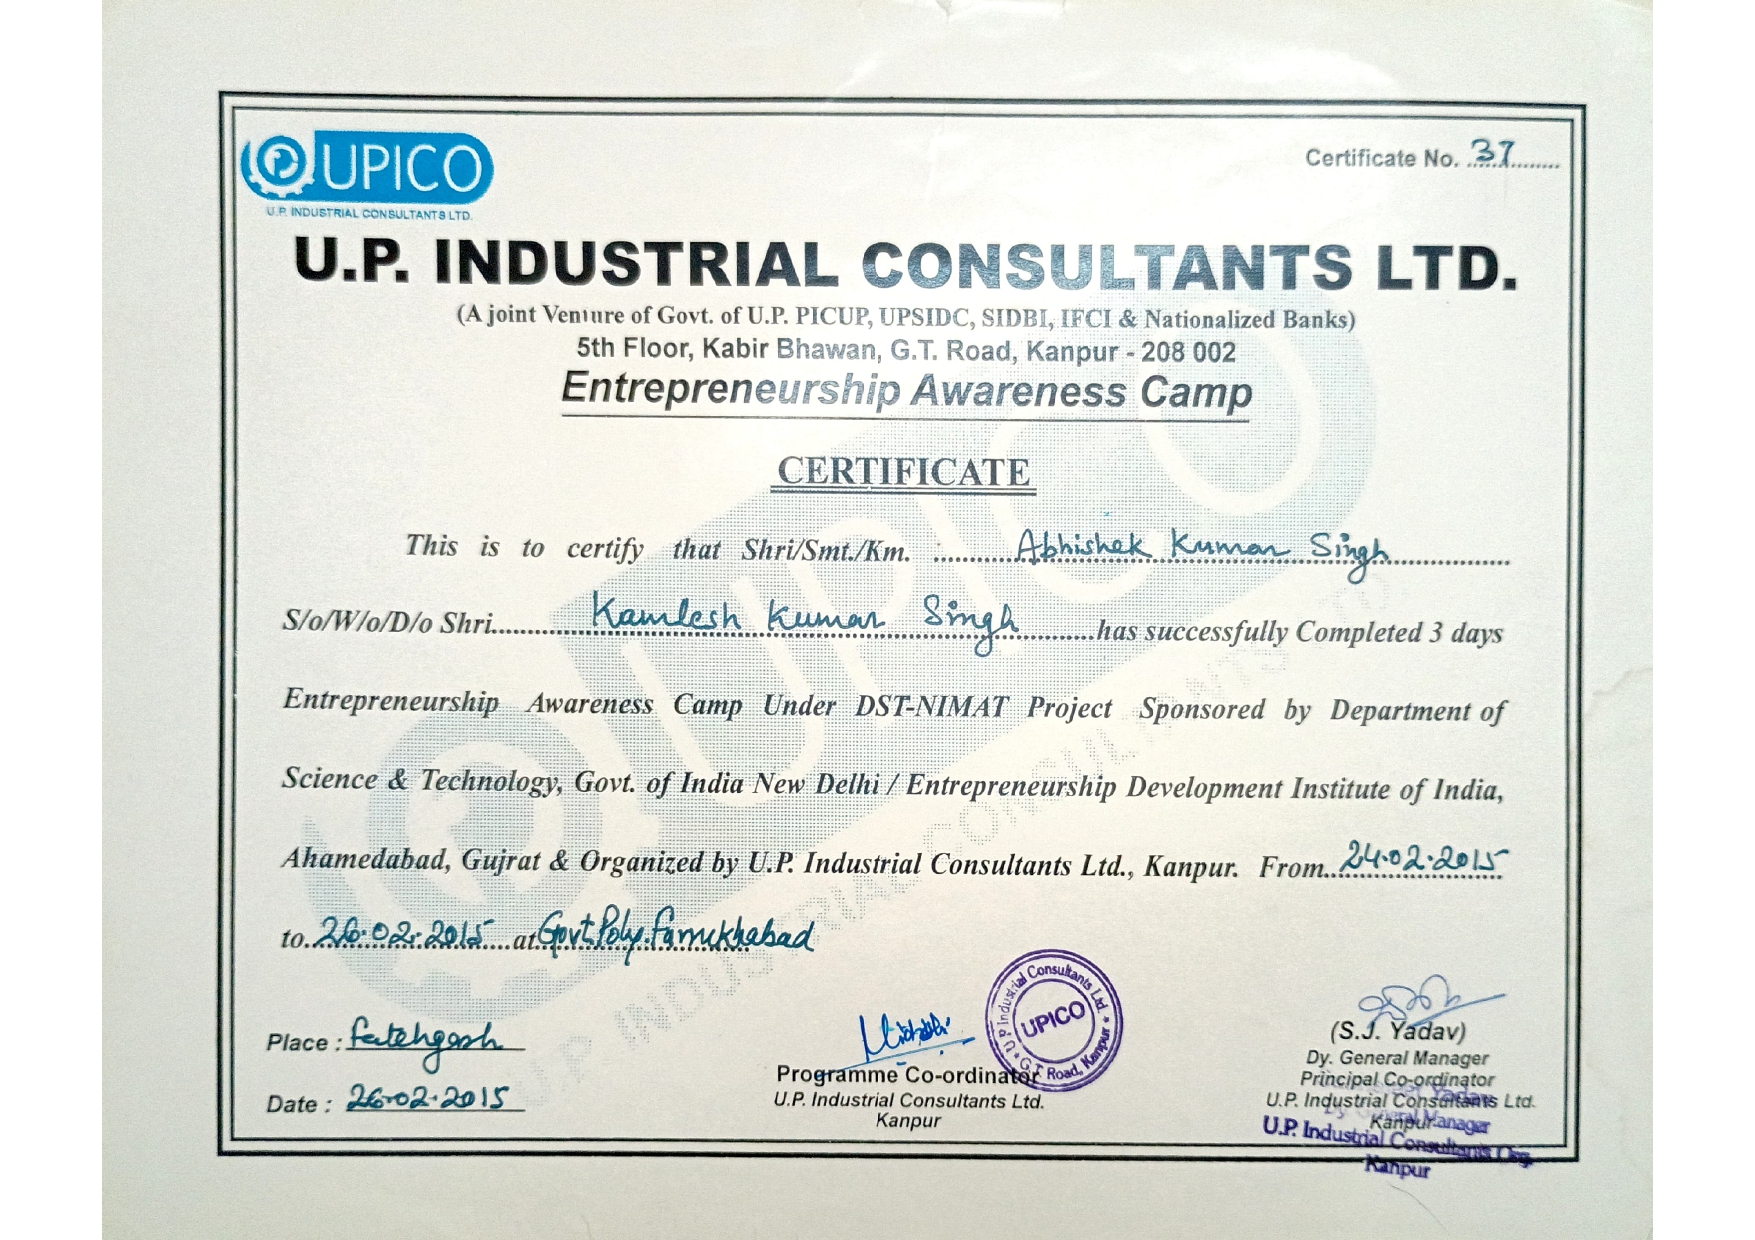 UPICO
U.P. INDUSTRIAL CONSULTANTS LTD.
Certificate No. 37
U.P. INDUSTRIAL CONSULTANTS LTD.
(A joint Venture of Govt. of U.P. PICUP, UPSIDC, SIDBI, IFCI & Nationalized Banks)
5th Floor, Kabir Bhawan, G.T. Road, Kanpur - 208 002
Entrepreneurship Awareness Camp
CERTIFICATE
This is to certify that Shri/Smt./Km. Abhishek Kumar Singh
S/o/W/o/D/o Shri Kamlesh Kumar Singh has successfully Completed 3 days
Entrepreneurship Awareness Camp Under DST-NIMAT Project Sponsored by Department of
Science & Technology, Govt. of India New Delhi / Entrepreneurship Development Institute of India,
Ahamedabad, Gujrat & Organized by U.P. Industrial Consultants Ltd., Kanpur. From 24.02.2015
to 26.02.2015 at Govt Poly Farrukhabad
Place : Fatehgarh
Date : 26.02.2015
Programme Co-ordinator
U.P. Industrial Consultants Ltd.
Kanpur
U.P Industrial Consultants Ltd.
UPICO
G.T. Road, Kanpur
(S.J. Yadav)
Dy. General Manager
Principal Co-ordinator
U.P. Industrial Consultants Ltd.
Kanpur
Yadav
Dy. General Manager
U.P. Industrial Consultants
Kanpur